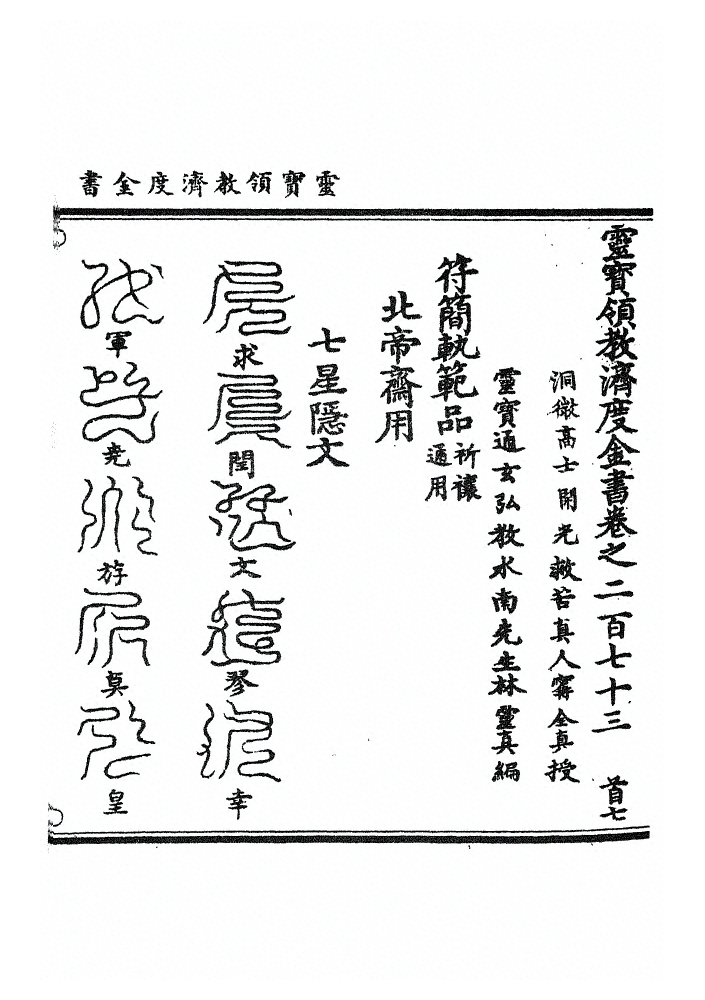 靈寶領教濟度金書
靈寶領教濟度金書卷之二百七十三 首七
洞微高士開光救苦真人甯全真授
靈寶通玄弘教水南先生林靈真編
符簡軌範品 祈禳通用
北帝齋用
七星隱文
求 閏 文 琴 幸
軍 堯 斿 莫 皇